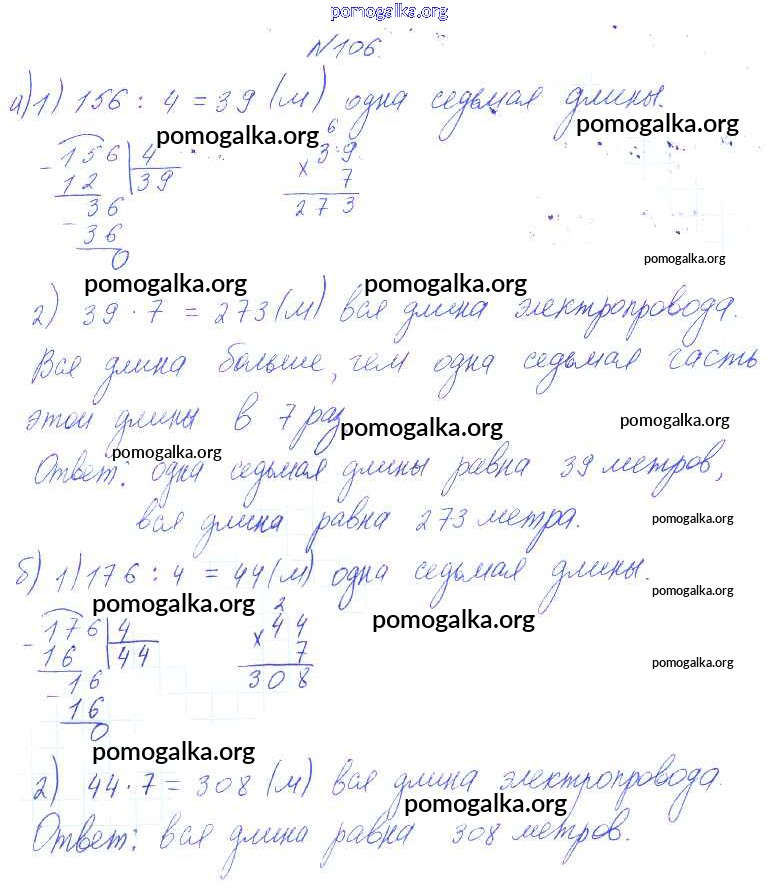 pomogalka.org
N106.
а) 1) 156 : 4 = 39 (м) одна седьмая длины.
pomogalka.org pomogalka.org
- 156 | 4 6
12 | 39 × 39
36 7
- 36 273
0
pomogalka.org
pomogalka.org pomogalka.org
2) 39 · 7 = 273 (м) вся длина электропровода.
Вся длина больше, чем одна седьмая часть
этой длины в 7 раз
pomogalka.org pomogalka.org
pomogalka.org
Ответ: одна седьмая длины равна 39 метров,
вся длина равна 273 метра.
pomogalka.org
б) 1) 176 : 4 = 44 (м) одна седьмая длины.
pomogalka.org
pomogalka.org pomogalka.org
- 176 | 4 2
16 | 44 × 44
16 7
- 16 308
0
pomogalka.org
pomogalka.org
2) 44 · 7 = 308 (м) вся длина электропровода.
pomogalka.org
Ответ: вся длина равна 308 метров.